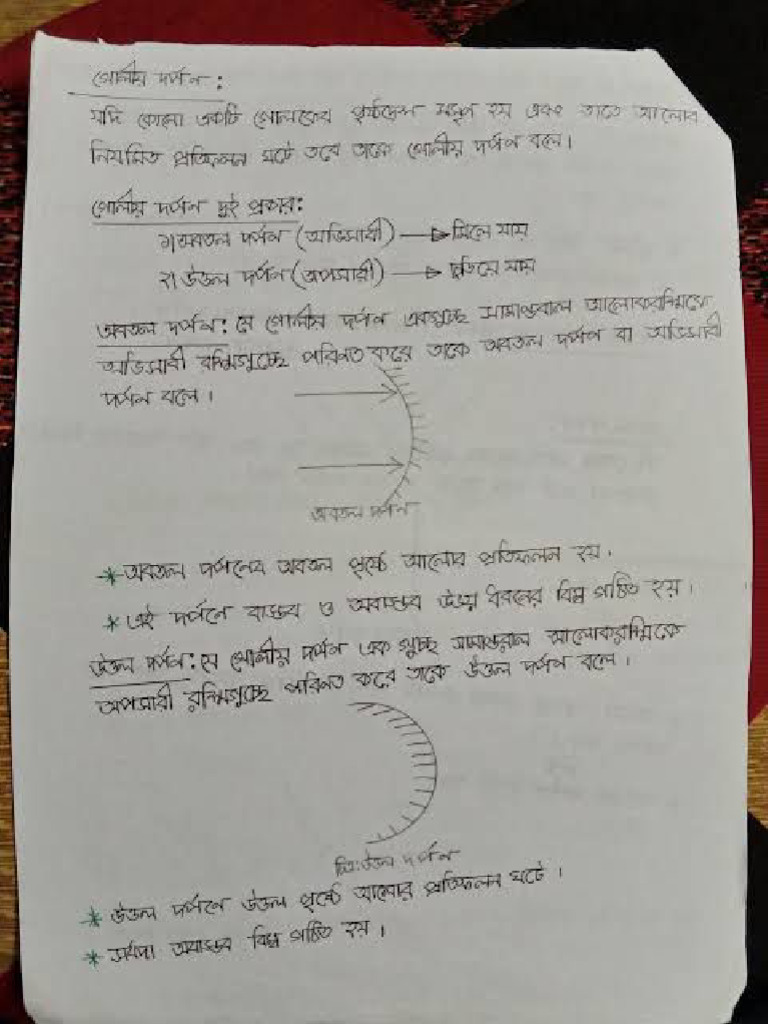 গোলীয় দর্পন:
যদি কোনো একটি গোলকের পৃষ্ঠদেশ মসৃণ হয় এবং তাতে আলোর
নিয়মিত প্রতিফলন ঘটে তবে তাকে গোলীয় দর্পণ বলে।
গোলীয় দর্পন দুই প্রকার:
১) অবতল দর্পন (অভিসারী) → মিলে যায়
২) উত্তল দর্পন (অপসারী) → ছড়িয়ে যায়
অবতল দর্পন: যে গোলীয় দর্পন একগুচ্ছ সামান্তরাল আলোকরশ্মিকে
অভিসারী রশ্মিগুচ্ছে পরিনত করে তাকে অবতল দর্পন বা অভিসারী
দর্পন বলে।
অবতল দর্পন
* অবতল দর্পনের অবতল পৃষ্ঠে আলোর প্রতিফলন হয়।
* এই দর্পনে বাস্তব ও অবাস্তব উভয় ধরনের বিম্ব গঠিত হয়।
উত্তল দর্পন: যে গোলীয় দর্পন এক গুচ্ছ সামান্তরাল আলোকরশ্মিকে
অপসারী রশ্মিগুচ্ছে পরিনত করে তাকে উত্তল দর্পন বলে।
চিত্র: উত্তল দর্পন
* উত্তল দর্পনে উত্তল পৃষ্ঠে আলোর প্রতিফলন ঘটে।
* সর্বদা অবাস্তব বিম্ব গঠিত হয়।